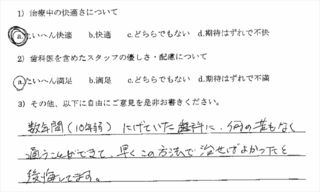 1) 治療中の快適さについて
a.たいへん快適 b.快適 c.どちらでもない d.期待はずれで不快
2) 歯科医を含めたスタッフの優しさ・配慮について
a.たいへん満足 b.満足 c.どちらでもない d.期待はずれで不満
3) その他、以下に自由にご意見を是非お書きください。
数年間(10年弱)にげていた歯科に、何の苦もなく
通うことができて、早くこの方法で治せばよかったと
後悔してます。